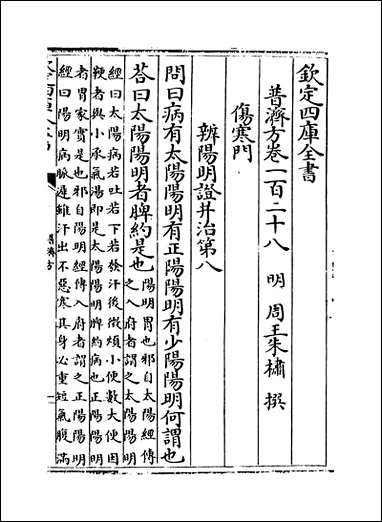 欽定四庫全書
普濟方卷一百二十八 明 周王朱橚 撰
傷寒門
辨陽明證并治第八
問曰病有太陽陽明有正陽陽明有少陽陽明何謂也
荅曰太陽陽明者脾約是也
陽明胃也邪自太陽經傳
之入府者謂之太陽陽明
經曰太陽病若吐若下若發汗後微煩小便數大便因
鞕者與小承氣湯即是太陽陽明脾約病也正陽陽明
者胃家實是也邪自陽明經傳入府者謂之正陽陽明
經曰陽明病脈遲雖汗出不惡寒其身必重短氣腹滿